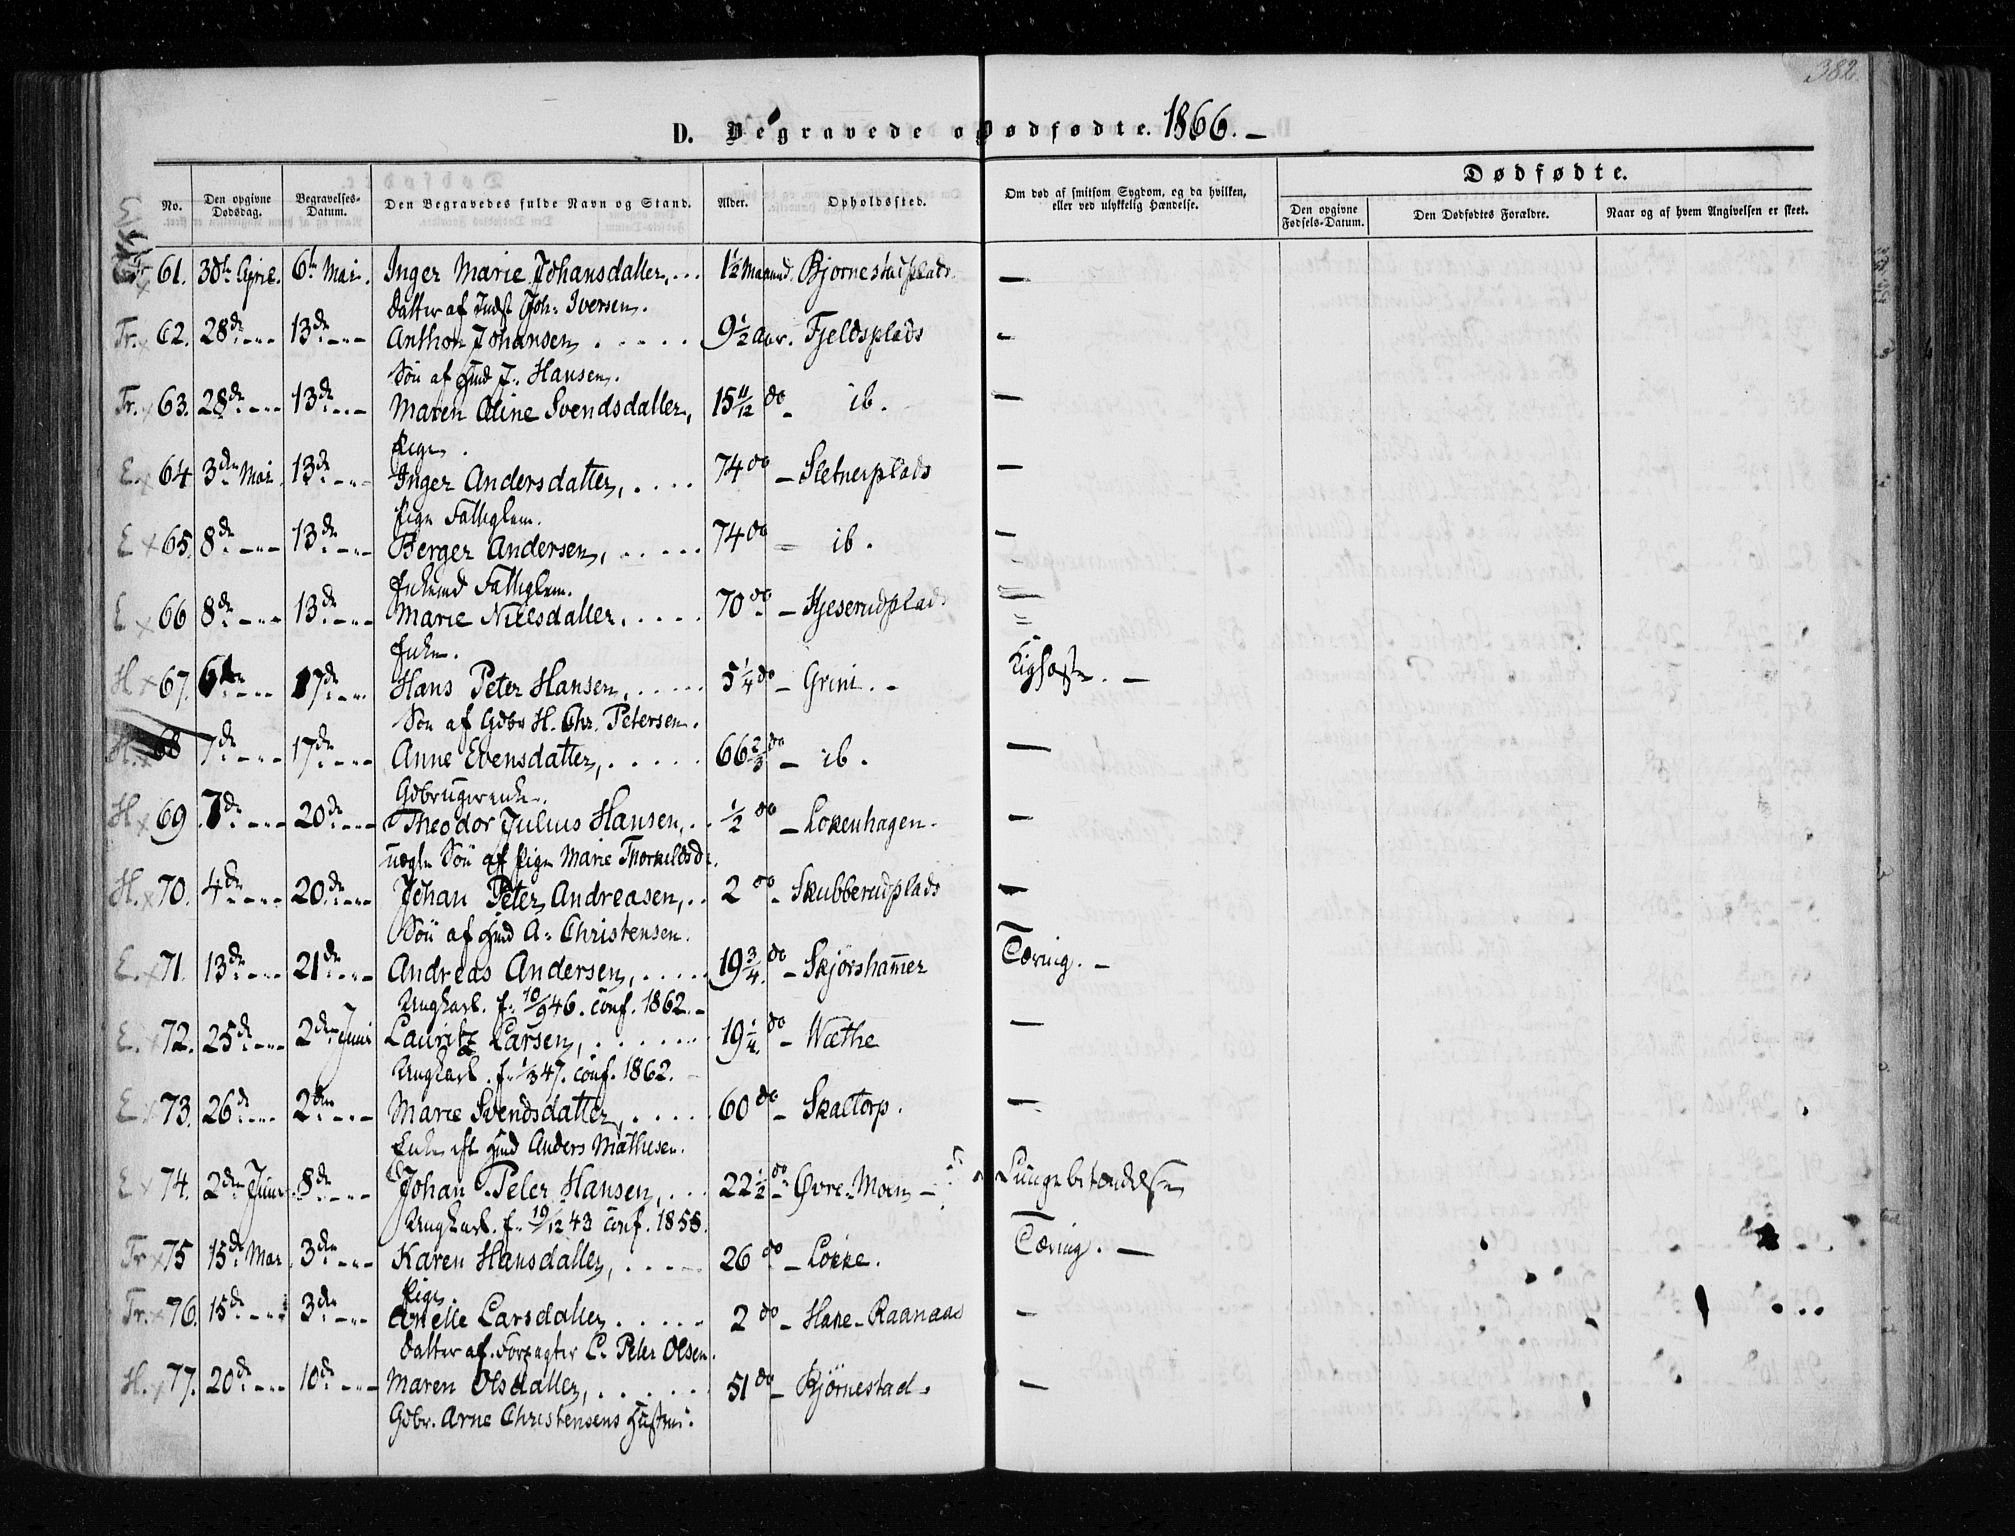 382.
D. Begravede og Dødfødte. 1866. –
Dødfødte.
No. Den opgivne Dødsdag. Begravelses-Datum. Den Begravedes fulde Navn og Stand. Alder. Opholdssted. Om død af smitsom Sygdom, og da hvilken, eller ved ulykkelig Hændelse. Den opgivne Fødsels-Datum. Den Dødfødtes Forældre. Naar og af hvem Angivelsen er skeet.
61. 30te April. 6te Mai. Inger Marie Johansdatter, . . . 1½ Maaned. Bjørnestadplads. —
Datter af Indst Joh: Iversen.
Tr. x 62. 28de -„- 13de -„- Anthon Johansen . . . . . 9½ Aar. Fjeldsplads –
Søn af Hmd J. Hansen.
Tr. x 63. 28de -„- 13de -„- Maren Oline Svendsdatter, 15 11/12 do – ib. —
Pige.
E. x 64 3die Mai. 13de -„- Inger Andersdatter, . . . . 74 do – Sletnerplads —
Pige Fattiglem.
E x 65. 8de -„- 13de -„- Berger Andersen, . . . . . 74 do = ib. –
Fattiglem.
E x 66 8de -„- 13de -„- Marie Nielsdatter. . . . . 70 do – Hjeserudplads =
Enke.
H x 67. 6te -„- 17de -„- Hans Peter Hansen, . . . . . 5¼ do – Grini. –
Søn af Gdbr H. Chr. Petersen.
H. x 68 7de -„- 17de -„- Anne Evensdatter, . . . . . 66⅔ do – ib. —
Gdbrugerenke.
H x 69 7de -„- 20de -„- Theodor Julius Hansen, . . ½ do – Løkenhagen. –
uægte Søn af Pige Marie Thorkildsd:
H. x 70. 4de -„- 20de -„- Johan Peter Andreasen, . . 2 do – Skubberudplads –
Søn af Hmd A. Christensen.
E. x 71. 13de -„- 21de -„- Andreas Andersen, . . . . . 19¾ do – Skjørshammer Tæring. –
Ungkarl. f. 10/9 46. conf. 1862. –
E. x 72. 25de -„- 2den Juni Lauritz Larsen, . . . . . . 19¼ do – Wæthe —
Ungkarl. f. 1/3 47. conf. 1862. –
E. x 73. 26de -„- 2den -„- Marie Svendsdatter, . . . . . 60 do – Skaltorp. —
Enke eft Hmd Anders Mathesen.
E x 74. 2den Juni 8de -„- Johan Peter Hansen, . . . 22½ do – Øvre-Moen – Lungebetændelse
Ungkarl. f. 19/12 43 conf. 1858.
Tr x 75 15de Mai 3die -„- Karen Hansdatter, . . . . . 26 do – Løkke. Tæring. —
Pige.
Tr. x 76. 15de -„- 3die -„- Anelle Larsdatter . . . . . 2 do – Hake-Raanaas –
Datter af Forpagter L. Peter Olsen.
H. x 77. 20de -„- 10de -„- Maren Olsdatter, . . . . . . 51 do – Bjørnestad. —
Gdbr. Arne Christensens Hustru.